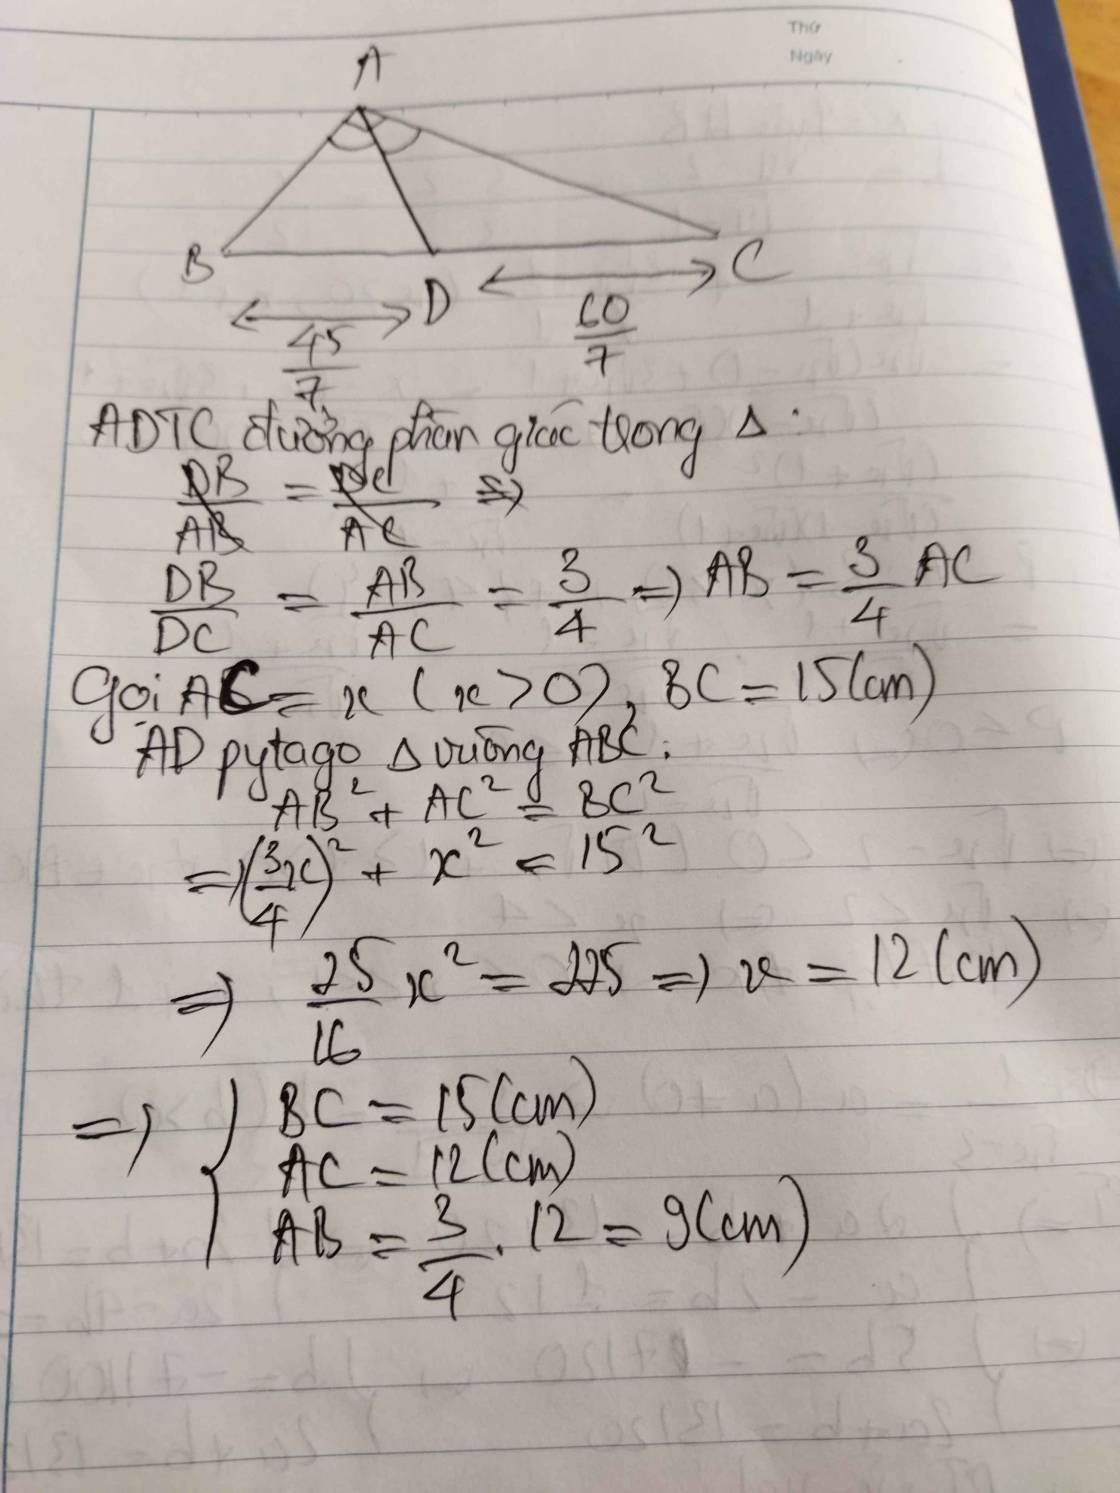 Thứ
Ngày
A
B
D
C
45/7
60/7
ADTC đường phân giác trong Δ :
DB/AB = DC/AC =>
DB/DC = AB/AC = 3/4 => AB = 3/4 AC
Gọi AC = x (x > 0), BC = 15(cm)
AD pytago Δ vuông ABC:
AB² + AC² = BC²
=> (3/4 x)² + x² = 15²
=> 25/16 x² = 225 => x = 12 (cm)
=> { BC = 15(cm)
AC = 12(cm)
AB = 3/4 . 12 = 9(cm)